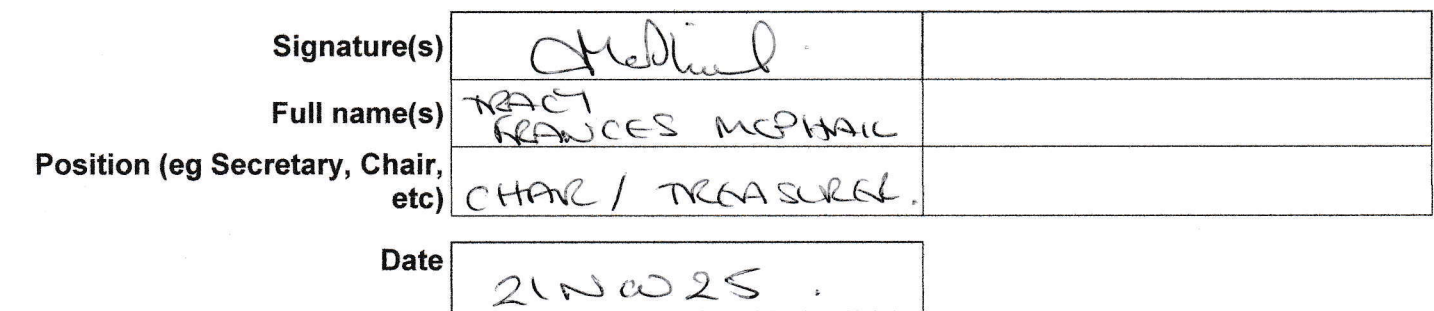 Signature(s)
Full name(s) TRACY
FRANCES MCPHAIL
Position (eg Secretary, Chair,
etc) CHAIR / TREASURER.
Date 21 NOV 25.